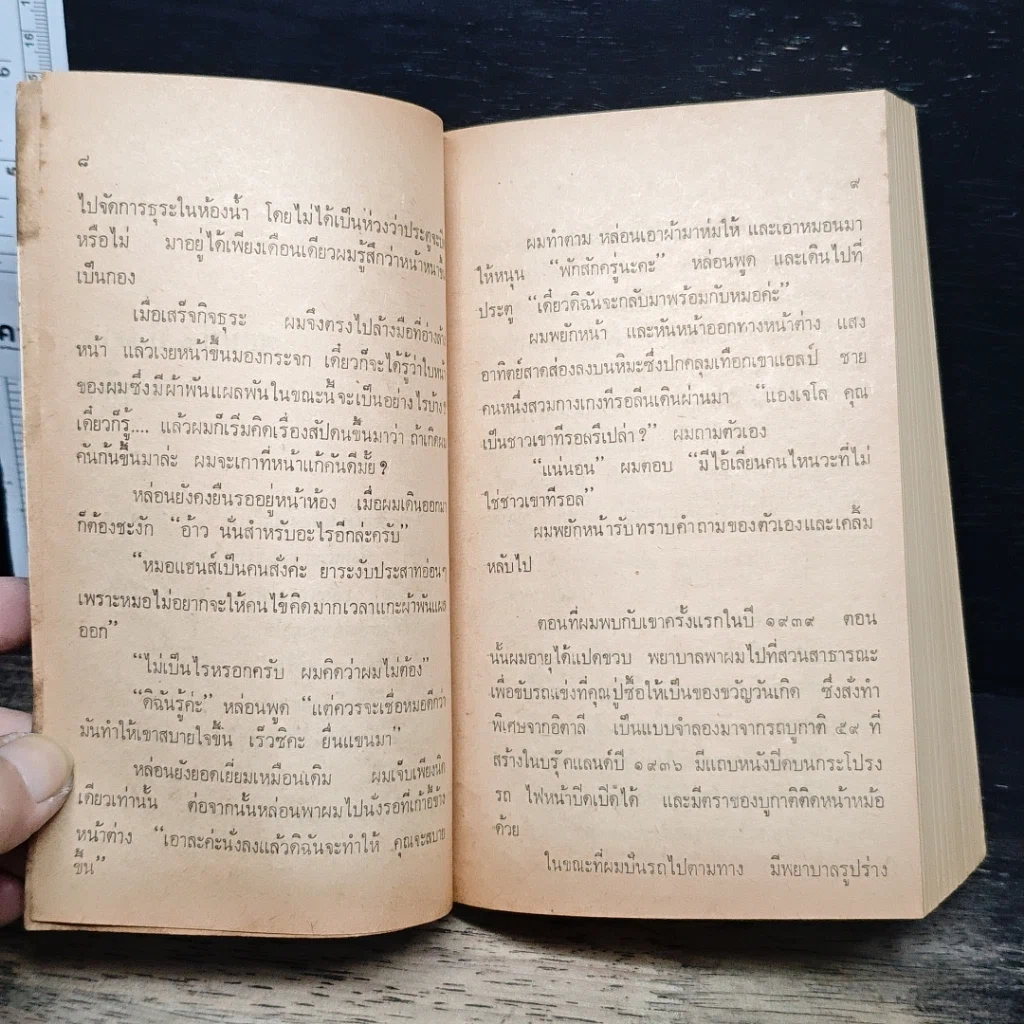 ๘
ไปจัดการธุระในห้องน้ำ โดยไม่ได้เป็นห่วงว่าประตูจะปิด
หรือไม่ มาอยู่ได้เพียงเดือนเดียวผมรู้สึกว่าหน้าหนาขึ้น
เป็นกอง
เมื่อเสร็จกิจธุระ ผมจึงตรงไปล้างมือที่อ่างล้าง
หน้า แล้วเงยหน้าขึ้นมองกระจก เดี๋ยวก็จะได้รู้ว่าใบหน้า
ของผมซึ่งมีผ้าพันแผลพันในขณะนี้จะเป็นอย่างไรบ้าง?
เดี๋ยวก็รู้.... แล้วผมก็เริ่มคิดเรื่องสัปดนขึ้นมาว่า ถ้าเกิดผม
คันก้นขึ้นมาล่ะ ผมจะเกาที่หน้าแก้คันดีมั้ย ?
หล่อนยังคงยืนรออยู่หน้าห้อง เมื่อผมเดินออกมา
ก็ต้องชะงัก “อ้าว นั่นสำหรับอะไรอีกล่ะครับ”
“หมอแฮนส์เป็นคนสั่งค่ะ ยาระงับประสาทอ่อนๆ
เพราะหมอไม่อยากจะให้คนไข้คิดมากเวลาแกะผ้าพันแผล
ออก”
“ไม่เป็นไรหรอกครับ ผมคิดว่าผมไม่ต้อง”
“ดิฉันรู้ค่ะ” หล่อนพูด “แต่ควรจะเชื่อหมอดีกว่า
มันทำให้เขาสบายใจขึ้น เร็วซิคะ ยื่นแขนมา”
หล่อนยังยอดเยี่ยมเหมือนเดิม ผมเจ็บเพียงนิด
เดียวเท่านั้น ต่อจากนั้นหล่อนพาผมไปนั่งรอที่เก้าอี้ข้าง
หน้าต่าง “เอาละค่ะนั่งลงแล้วดิฉันจะทำให้ คุณจะสบาย
ขึ้น”
๙
ผมทำตาม หล่อนเอาผ้ามาห่มให้ และเอาหมอนมา
ให้หนุน “พักสักครู่นะคะ” หล่อนพูด และเดินไปที่
ประตู “เดี๋ยวดิฉันจะกลับมาพร้อมกับหมอค่ะ”
ผมพยักหน้า และหันหน้าออกทางหน้าต่าง แสง
อาทิตย์สาดส่องลงบนหิมะซึ่งปกคลุมเทือกเขาแอลป์ ชาย
คนหนึ่งสวมกางเกงทีรอลีนเดินผ่านมา “แองเจโล คุณ
เป็นชาวเขาทีรอลรึเปล่า ?” ผมถามตัวเอง
“แน่นอน” ผมตอบ “มีไอ้เลี่ยนคนไหนวะที่ไม่
ใช่ชาวเขาทีรอล”
ผมพยักหน้ารับทราบคำถามของตัวเองและเคลิ้ม
หลับไป
ตอนที่ผมพบกับเขาครั้งแรกในปี ๑๙๓๙ ตอน
นั้นผมอายุได้แปดขวบ พยาบาลพาผมไปที่สวนสาธารณะ
เพื่อขับรถแข่งที่คุณปู่ซื้อให้เป็นของขวัญวันเกิด ซึ่งสั่งทำ
พิเศษจากอิตาลี เป็นแบบจำลองมาจากรถบูกาติ ๕๙ ที่
สร้างในบรุ๊คแลนด์ปี ๑๙๓๖ มีแถบหนังปิดบนกระโปรง
รถ ไฟหน้าปิดเปิดได้ และมีตราของบูกาติติดหน้าหม้อ
ด้วย
ในขณะที่ผมปั่นรถไปตามทาง มีพยาบาลรูปร่าง